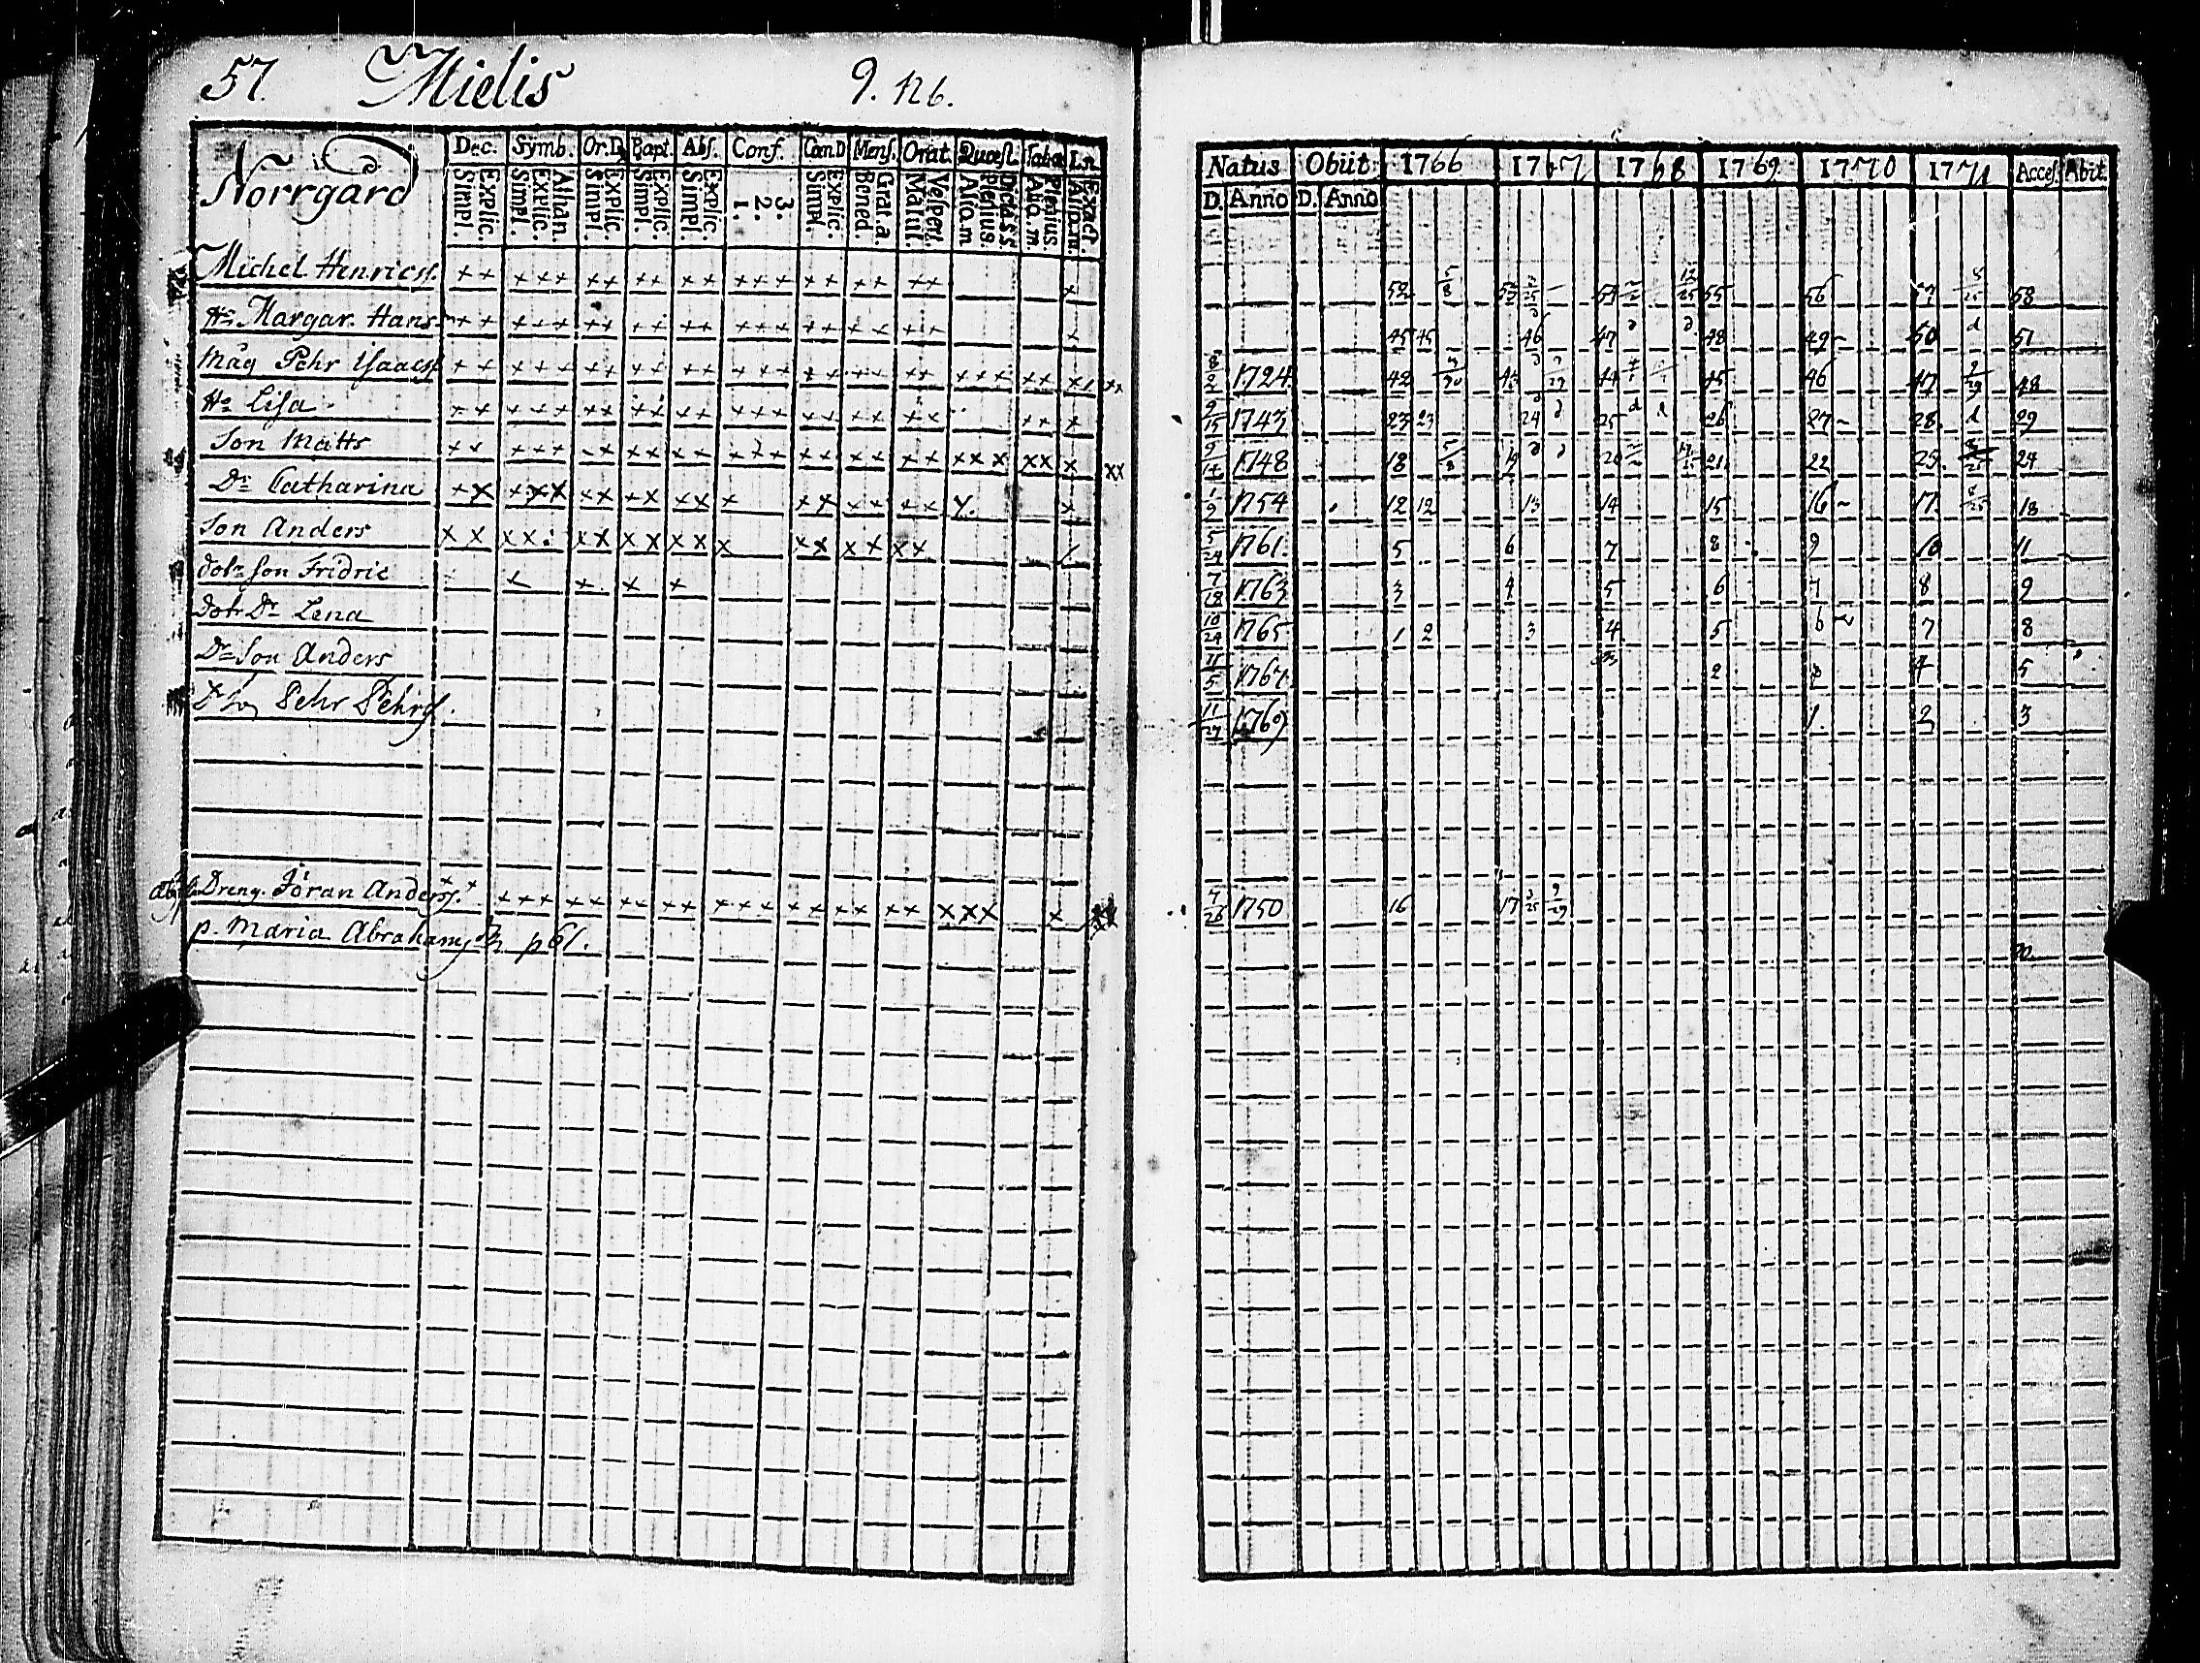 57. Mielis 9. 126.
Norrgård
Dec. Symb. Or.D. Bapt. Abs. Conf. Cœn.D Mens. Orat. Quæst. Taba
Explic. Simpl. Athan. Explic. Simpl. Explic. Simpl. Explic. Simpl. Explic. Simpl. 3. 2. 1. Explic. Simpl. Grat.a. Bened. Vespert. Matut. Dicta S.S. Plenius. Aliq.m Plenius. Aliq.m. Exact. Aliq.m.
Natus Obiit 1766 1767 1768 1769. 1770 1771 Acces. Abit.
D. Anno D. Anno
Michel Henricss. 55 56 57 58
Hu Margar. Hans. 45 45 46 47 48 49 50 51
Måg Pehr Isaacss. 1724. 42 44 45 46 47 48
Hu Lisa. 9/15 1743 23 23 24 25 26 27 28 29
Son Matts 1748 18 19 20 21 22 23. 24
Dr Catharina 1/9 1754 12 12 13 14 15 16 17. 18
Son Anders 5/24 1761. 5 6 7 8 9 10 11
dotr. son Fridric 7/18 1763 3 4 5 6 7 8 9
dotr Dr Lena 10/24 1765 1 2 3 4 5 6 7 8
Dr Son Anders 11/5 1767 2 3 4 5
Pehr Pehrss. 11/27 1769 1. 2 3
Dreng. Jöran Anderss. 7/26 1750 16 17
p. Maria Abrahams p 61.